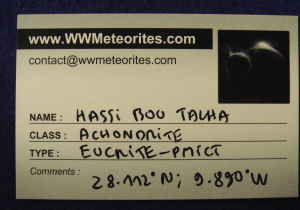 www.WWMeteorites.com
contact@wwmeteorites.com
NAME: HASSI BOU TALHA
CLASS: ACHONDRITE
TYPE: EUCRITE-PMICT
Comments:
28.112°N; 9.890°W